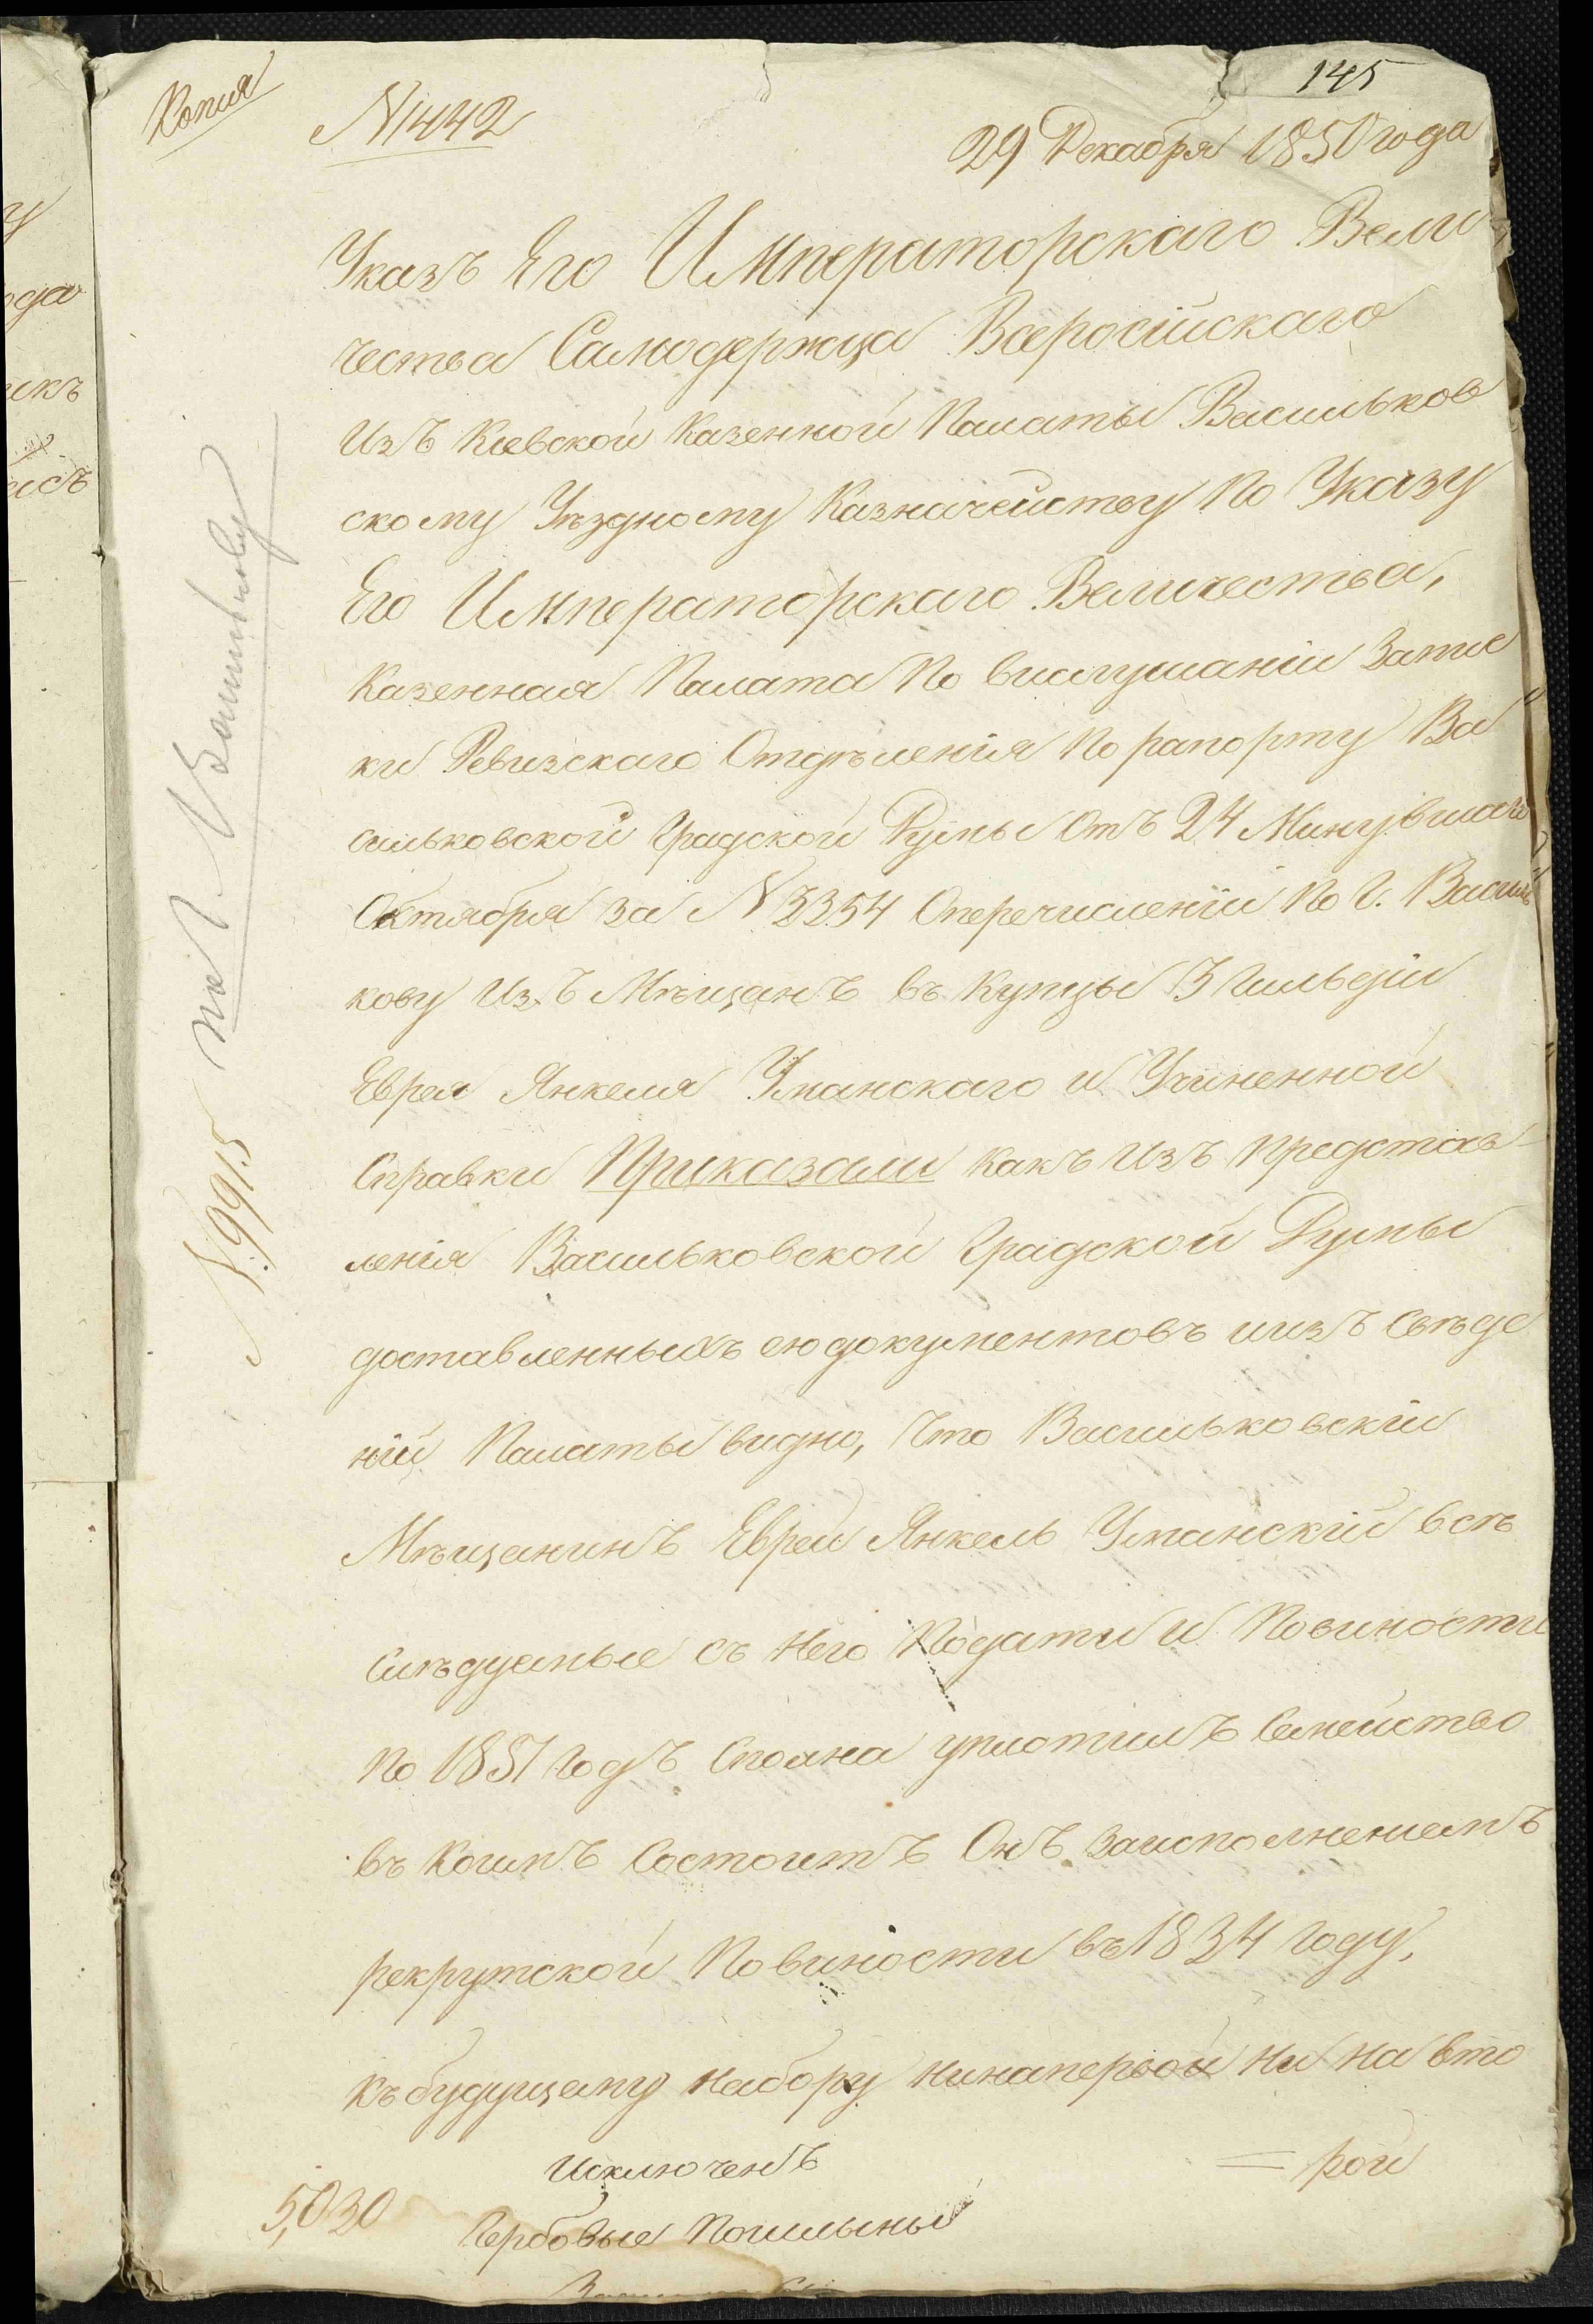 145
Копия
N1442
29 Декабря 1850 года
Указъ Его Императорскаго Вели
чества Самодержца Всеросійскаго
Изъ Кіевской Казенной Палаты Васильков
скому Уѣздному Казначейству По Указу
Его Императорскаго Величества,
Казенная Палата По выслушаніи Запис
ки Ревизскаго Отдѣленія По рапорту Ва
сильковской Градской Думы Отъ 24 Минувшаго
Октября за N 3354 Оперечисленіи По Г. Василь
кову Изъ Мѣщанъ въ Купцы 3 Гильдіи
Еврея Янкеля Уманскаго и Учиненной
Справки Приказали Какъ Изъ Представ
ленія Васильковской Градской Думы
доставленныхъ ею документовъ иизъ Свѣде
ній Палаты видно, Что Васильковскій
Мѣщанинъ Еврей Янкель Уманскій всѣ
Слѣдуемые съ Него Подати и Повиности
По 1851 Годъ Сполна уплотилъ Семейство
въ Коимъ Состоитъ Онъ Заисполненіемъ
рекрутской Повиности въ 1834 Году,
Къбудущему Набору нинапервой ни на вто
= рой
Исключенъ
5,030
Гербовые Пошлины
N: 9915